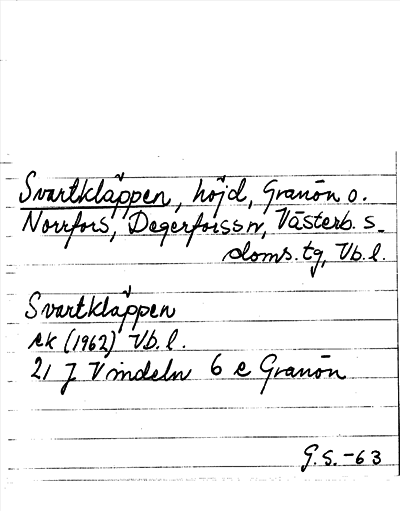 Svartkläppen, höjd, Granön o.
Norrfors, Degerforssn, Västerb. s.
doms. tg, Vb. l.
Svartkläppen
ek (1962) Vb. l.
21 J Vindeln 6 e Granön
G.S. -63